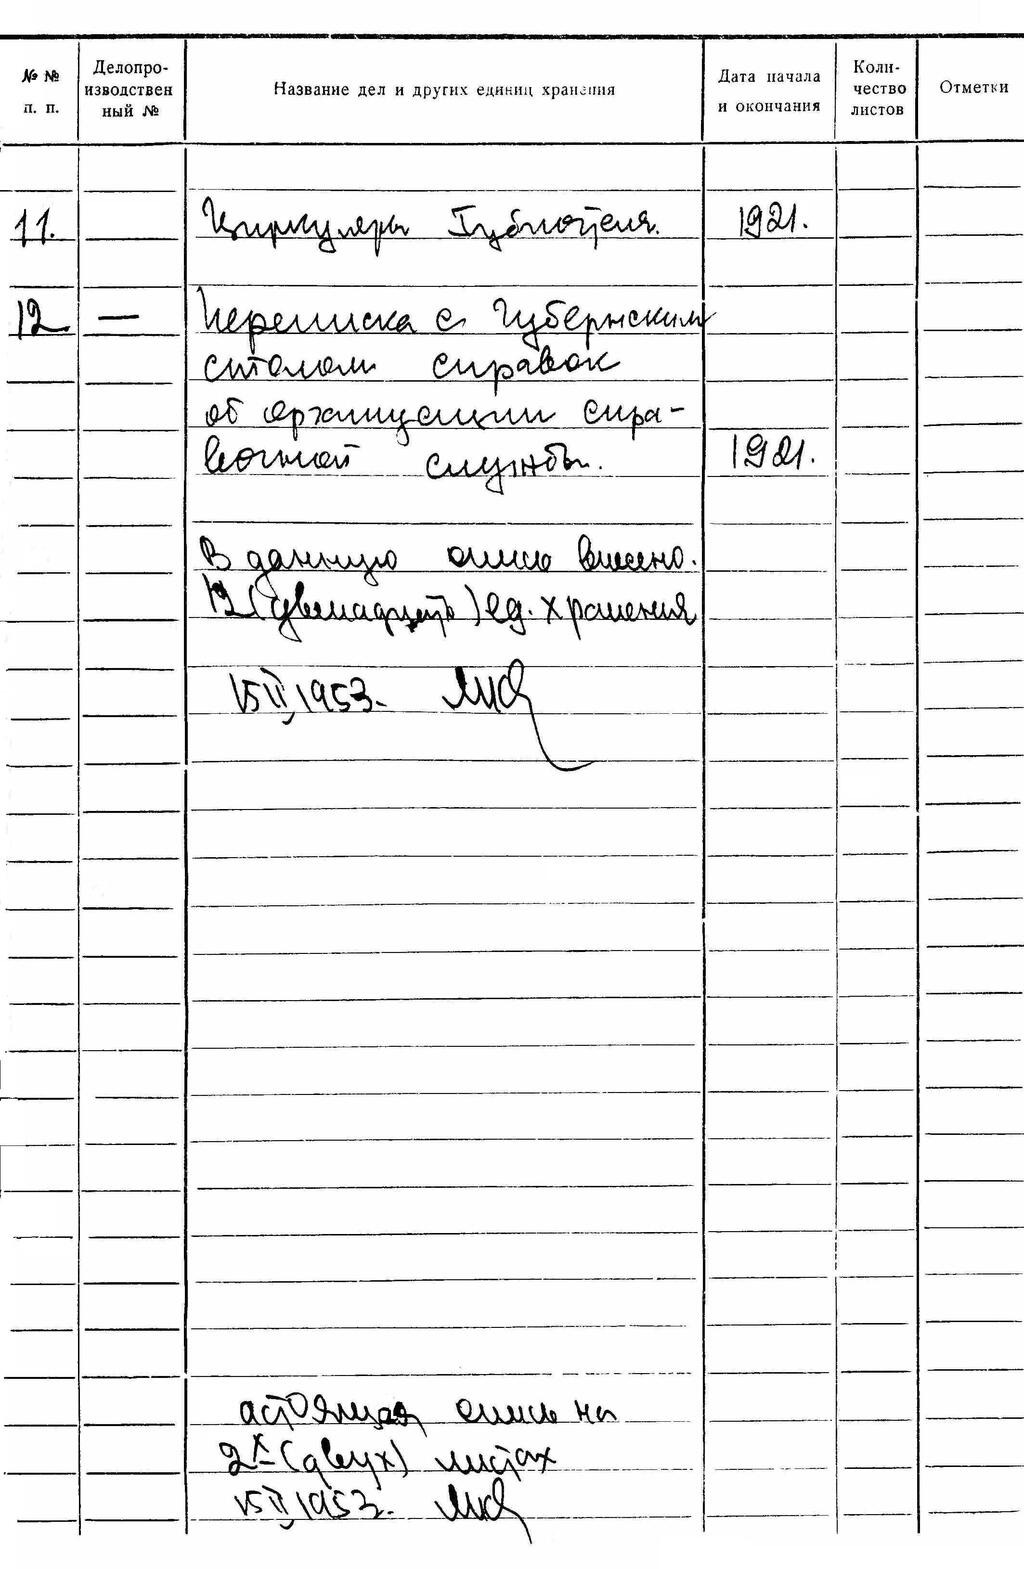 № № п. п.
Делопро-
изводствен
ный №
Название дел и других единиц хранения
Дата начала
и окончания
Коли-
чество
листов
Отметки
11. Циркуляры 1921.
12 — Переписка с Губернским
столом справок
об организации спра-
вочной службы. 1921.
В данную опись внесено.
12 (двенадцать) ед. хранения
15 II 1953.
астоящая опись на
2х (двух) листах
15 II 1953.